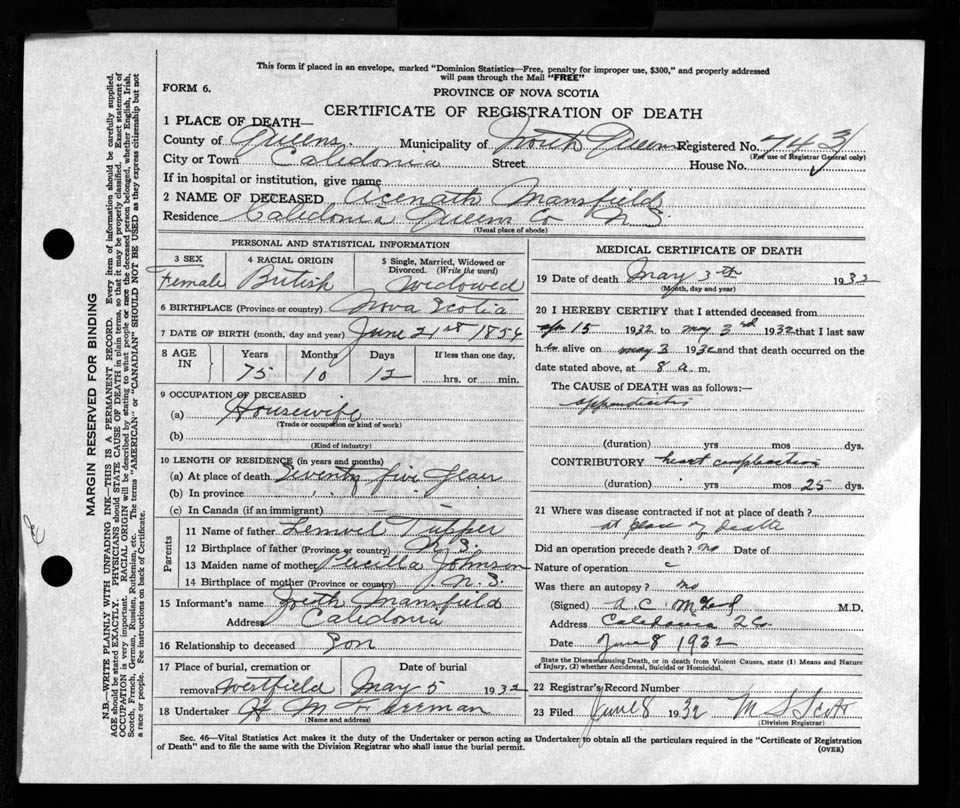 This form if placed in an envelope, marked "Dominion Statistics—Free, penalty for improper use, $300," and properly addressed
will pass through the Mail "FREE"
FORM 6.
PROVINCE OF NOVA SCOTIA
CERTIFICATE OF REGISTRATION OF DEATH
1 PLACE OF DEATH—
County of Queens Municipality of North Queens Registered No. 743
(For use of Registrar General only)
City or Town Caledonia Street House No.
If in hospital or institution, give name
2 NAME OF DECEASED Acenath Mansfield
Residence Caledonia Queens Co N S
(Usual place of abode)
PERSONAL AND STATISTICAL INFORMATION
3 SEX Female
4 RACIAL ORIGIN British
5 Single, Married, Widowed or Divorced. (Write the word) Widowed
6 BIRTHPLACE (Province or country) Nova Scotia
7 DATE OF BIRTH (month, day and year) June 21st 1856
8 AGE IN Years Months Days If less than one day,
75 10 12 hrs. or min.
9 OCCUPATION OF DECEASED
(a) Housewife
(Trade or occupation or kind of work)
(b)
(Kind of industry)
10 LENGTH OF RESIDENCE (in years and months)
(a) At place of death Seventy five year
(b) In province
(c) In Canada (if an immigrant)
Parents
11 Name of father Lemuel Tupper
12 Birthplace of father (Province or country) N. S.
13 Maiden name of mother Pricilla Johnson
14 Birthplace of mother (Province or country) N. S.
15 Informant's name Mansfield
Address Caledonia
16 Relationship to deceased Son
17 Place of burial, cremation or removal Westfield
Date of burial May 5 1932
18 Undertaker H M Freeman
(Name and address)
MEDICAL CERTIFICATE OF DEATH
19 Date of death May 3th 1932
(Month, day and year)
20 I HEREBY CERTIFY that I attended deceased from
Apr 15 1932 to May 3rd 1932 that I last saw
her alive on May 3 1932 and that death occurred on the
date stated above, at 8 a. m.
The CAUSE OF DEATH was as follows:—
appendicitis
(duration) yrs mos dys.
CONTRIBUTORY heart complication
(duration) yrs mos 25 dys.
21 Where was disease contracted if not at place of death?
at place of death
Did an operation precede death? no Date of
Nature of operation
Was there an autopsy? no
(Signed) A. C. M.D.
Address Caledonia Q Co.
Date June 8 1932
State the Disease causing Death, or in death from Violent Causes, state (1) Means and Nature
of Injury, (2) whether Accidental, Suicidal or Homicidal.
22 Registrar's Record Number
23 Filed June 8 1932 M S Scott
(Division Registrar)
Sec. 46—Vital Statistics Act makes it the duty of the Undertaker or person acting as Undertaker to obtain all the particulars required in the "Certificate of Registration
of Death" and to file the same with the Division Registrar who shall issue the burial permit.
(OVER)
MARGIN RESERVED FOR BINDING
N.B.—WRITE PLAINLY WITH UNFADING INK—THIS IS A PERMANENT RECORD. Every item of information should be carefully supplied.
AGE should be stated EXACTLY. PHYSICIANS should STATE CAUSE OF DEATH in plain terms, so that it may be properly classified. Exact statement of
OCCUPATION is very important. RACIAL ORIGIN will be described by stating to what people or race the deceased person belonged, whether English, Irish,
Scotch, French, German, Russian, Ruthenian, etc. The terms "AMERICAN" or "CANADIAN" SHOULD NOT BE USED as they express citizenship but not
a race or people. See instructions on back of Certificate.